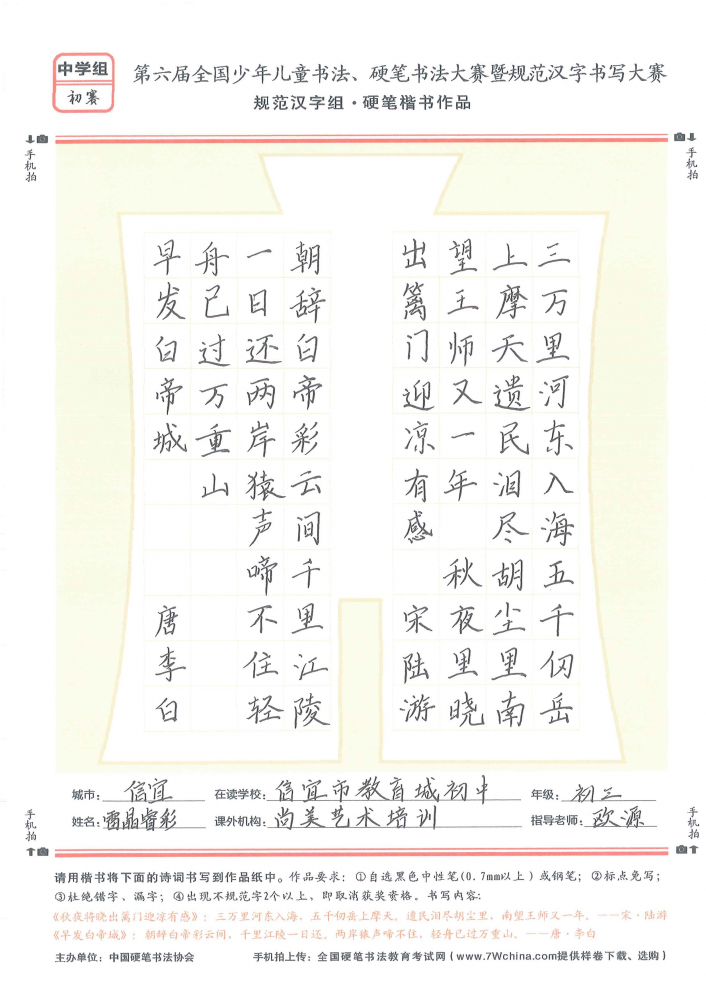 中学组
初赛
第六届全国少年儿童书法、硬笔书法大赛暨规范汉字书写大赛
规范汉字组·硬笔楷书作品
手机拍
手机拍
三万里河东入海五千仞岳
上摩天遗民泪尽胡尘里南
望王师又一年 秋夜里晓
出篱门迎凉有感 宋陆游
朝辞白帝彩云间千里江陵
一日还两岸猿声啼不住轻
舟已过万重山
早发白帝城 唐李白
城市：信宜 在读学校：信宜市教育城初中 年级：初三
姓名：雷晶睿彩 课外机构：尚美艺术培训 指导老师：欧源
手机拍
手机拍
请用楷书将下面的诗词书写到作品纸中。作品要求：①自选黑色中性笔(0.7mm以上)或钢笔；②标点免写；
③杜绝错字、漏字；④出现不规范字2个以上，即取消获奖资格。书写内容：
《秋夜将晓出篱门迎凉有感》：三万里河东入海，五千仞岳上摩天。遗民泪尽胡尘里，南望王师又一年。——宋·陆游
《早发白帝城》：朝辞白帝彩云间，千里江陵一日还。两岸猿声啼不住，轻舟已过万重山。——唐·李白
主办单位：中国硬笔书法协会 手机拍上传：全国硬笔书法教育考试网（www.7Wchina.com提供样卷下载、选购）